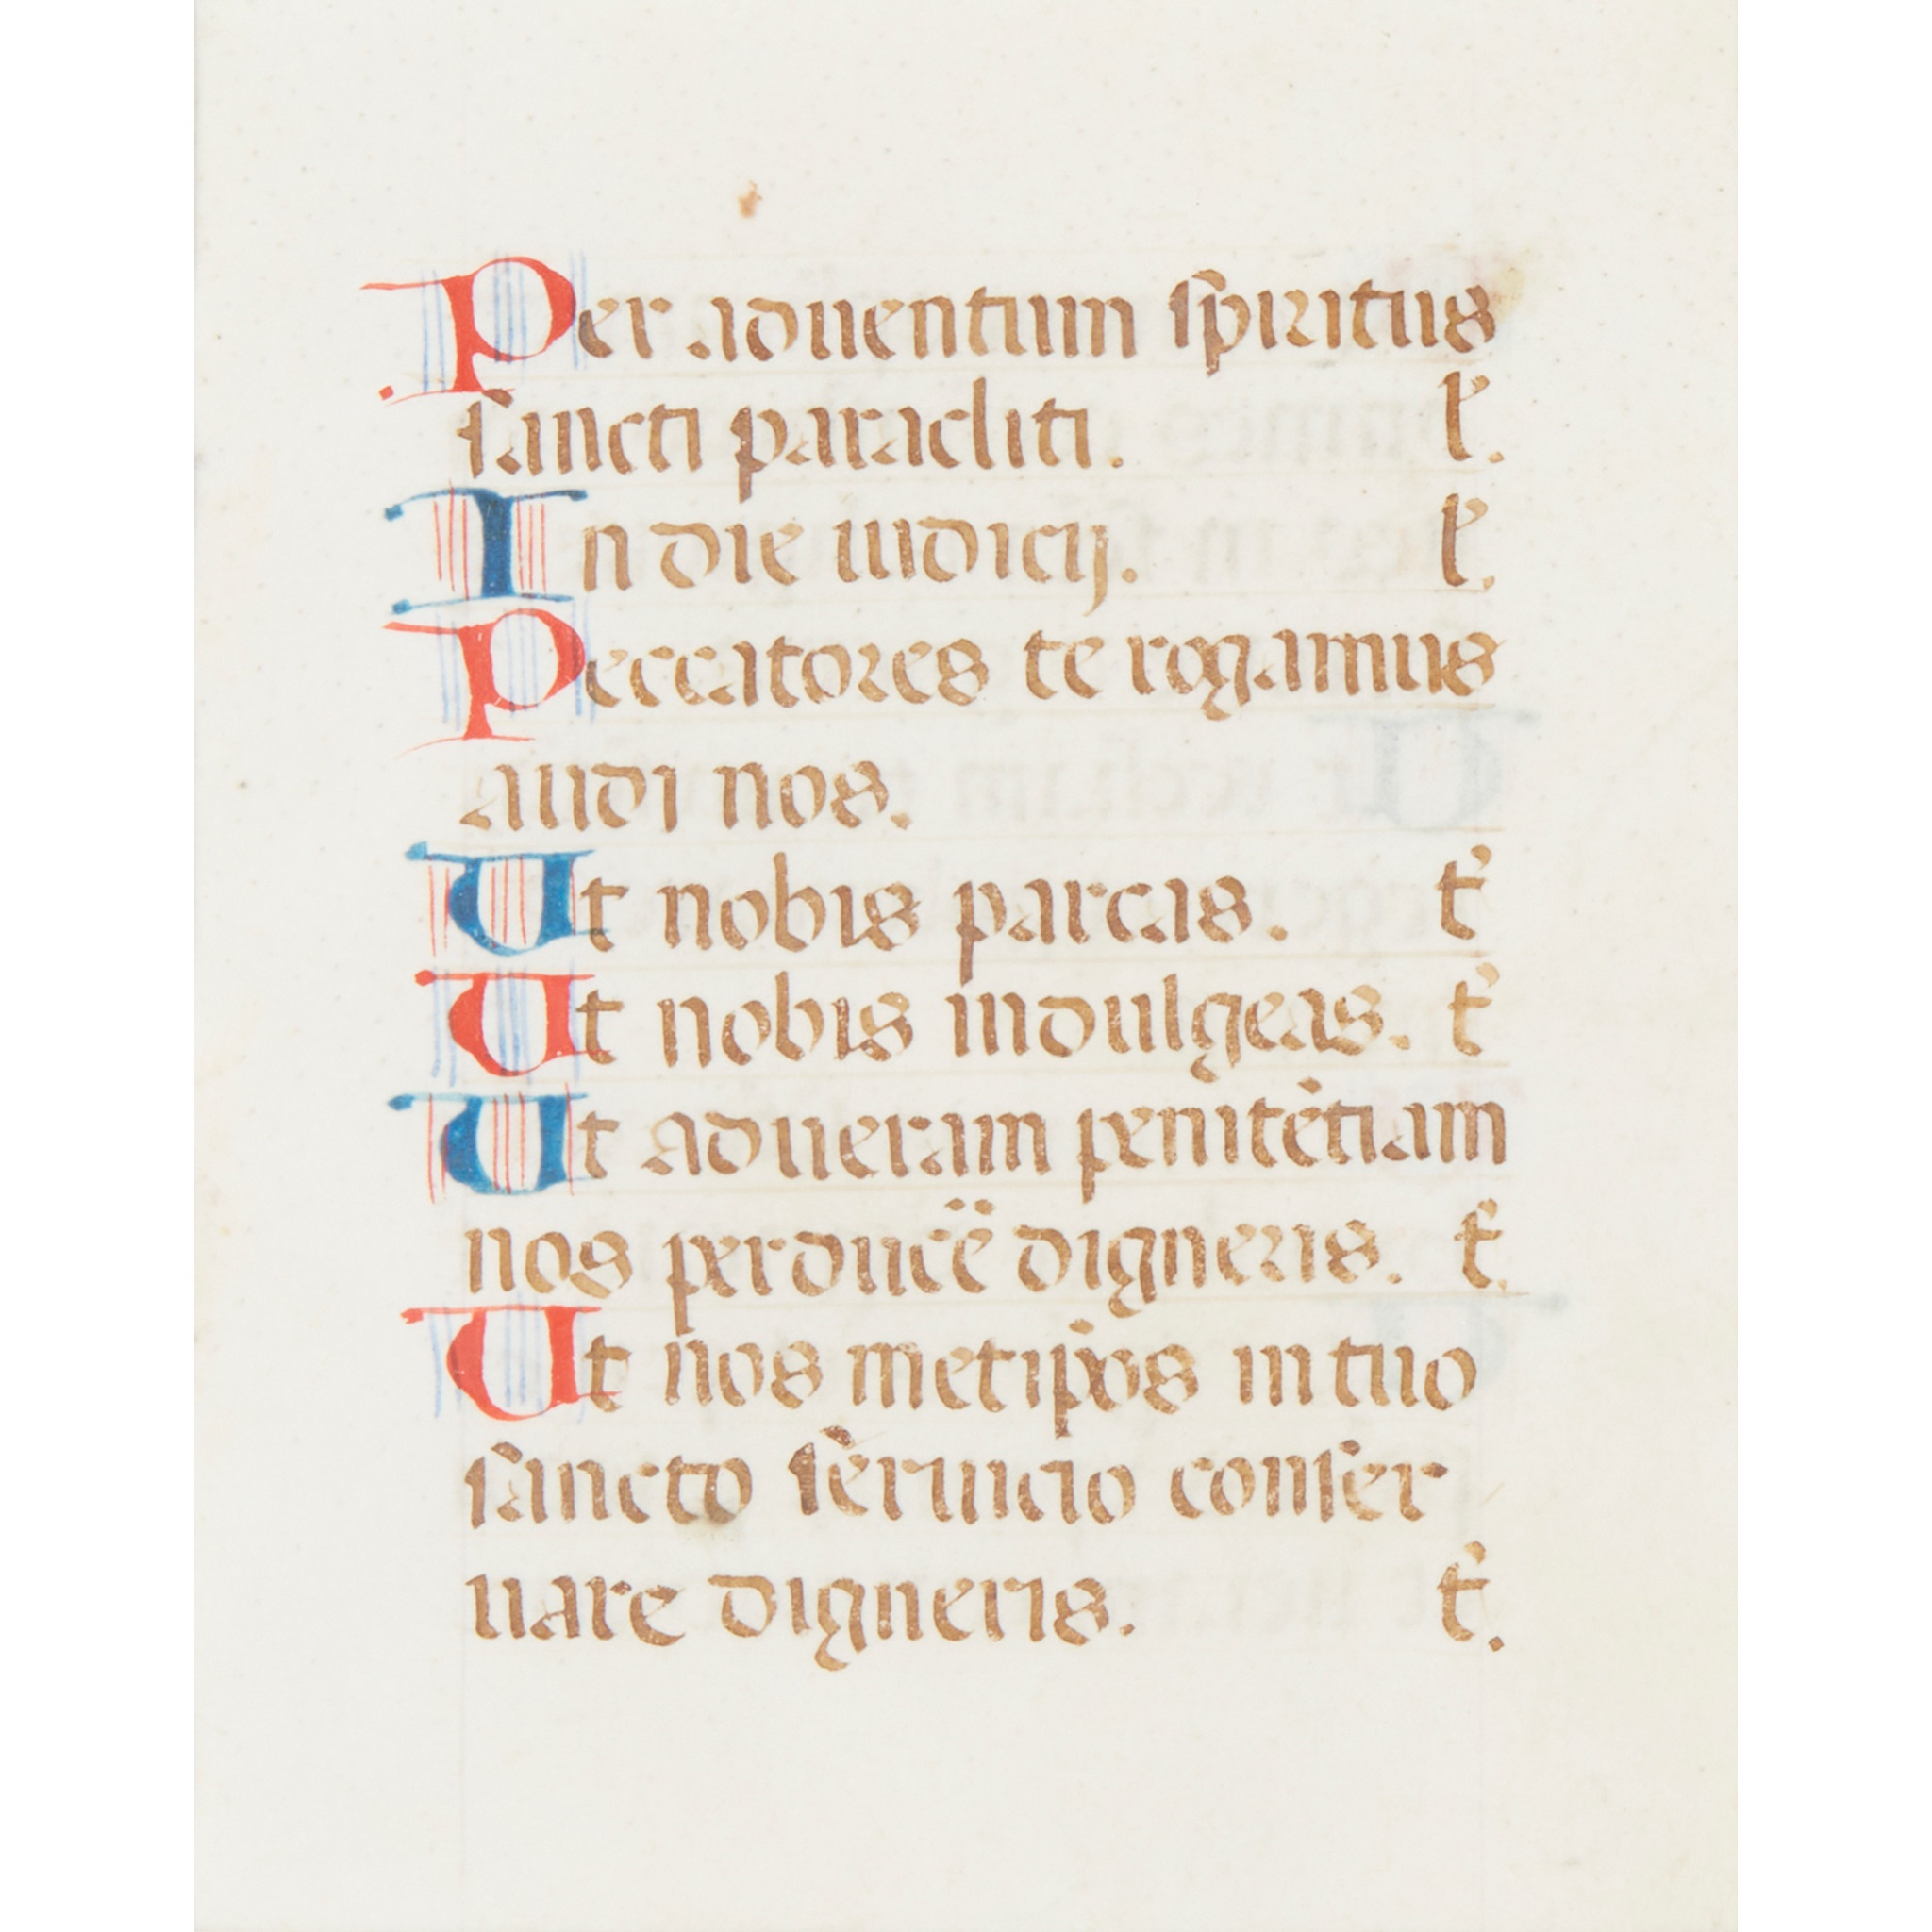 Per aduentum spiritus
sancti paracliti. l'.
In die iudicij. l'.
Peccatores te rogamus
audi nos.
Ut nobis parcas. t'
Ut nobis indulgeas. t'
Ut ad ueram penitētiam
nos perducē digneris. t'.
Ut nos metip̄os in tuo
sancto seruicio conser
uare digneris. t'.